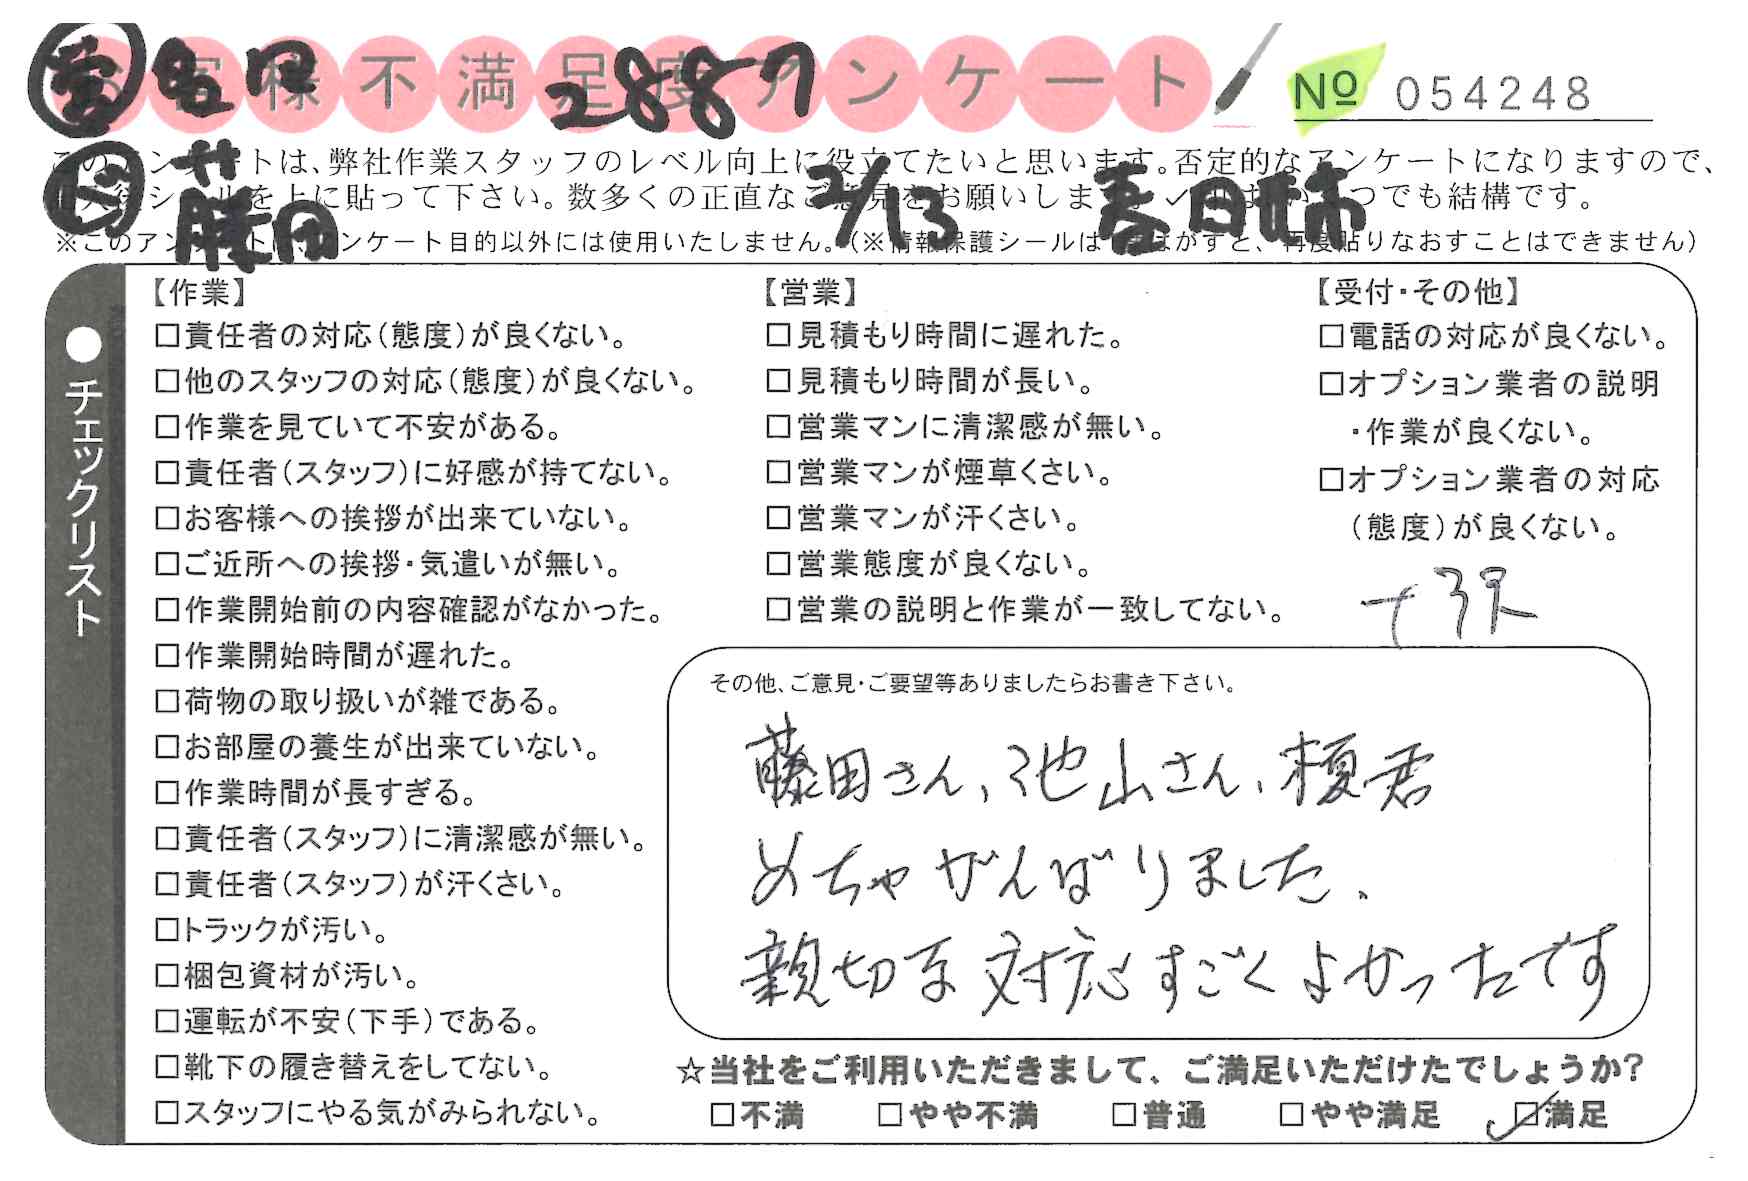 お客様不満足度アンケート
2887
№ 054248
このアンケートは、弊社作業スタッフのレベル向上に役立てたいと思います。否定的なアンケートになりますので、
シールを上に貼って下さい。数多くの正直なご意見をお願いします つでも結構です。
藤田 2/13 春日姉
※このアンケートは、アンケート目的以外には使用いたしません。（※情報保護シールは はがすと、再度貼りなおすことはできません）
●チェックリスト
【作業】
□責任者の対応（態度）が良くない。
□他のスタッフの対応（態度）が良くない。
□作業を見ていて不安がある。
□責任者（スタッフ）に好感が持てない。
□お客様への挨拶が出来ていない。
□ご近所への挨拶・気遣いが無い。
□作業開始前の内容確認がなかった。
□作業開始時間が遅れた。
□荷物の取り扱いが雑である。
□お部屋の養生が出来ていない。
□作業時間が長すぎる。
□責任者（スタッフ）に清潔感が無い。
□責任者（スタッフ）が汗くさい。
□トラックが汚い。
□梱包資材が汚い。
□運転が不安（下手）である。
□靴下の履き替えをしてない。
□スタッフにやる気がみられない。
【営業】
□見積もり時間に遅れた。
□見積もり時間が長い。
□営業マンに清潔感が無い。
□営業マンが煙草くさい。
□営業マンが汗くさい。
□営業態度が良くない。
□営業の説明と作業が一致してない。
【受付・その他】
□電話の対応が良くない。
□オプション業者の説明
・作業が良くない。
□オプション業者の対応
（態度）が良くない。
その他、ご意見・ご要望等ありましたらお書き下さい。
藤田さん、池山さん、榎君
めちゃがんばりました、
親切な対応すごくよかったです
☆当社をご利用いただきまして、ご満足いただけたでしょうか?
□不満 □やや不満 □普通 □やや満足 ☑満足